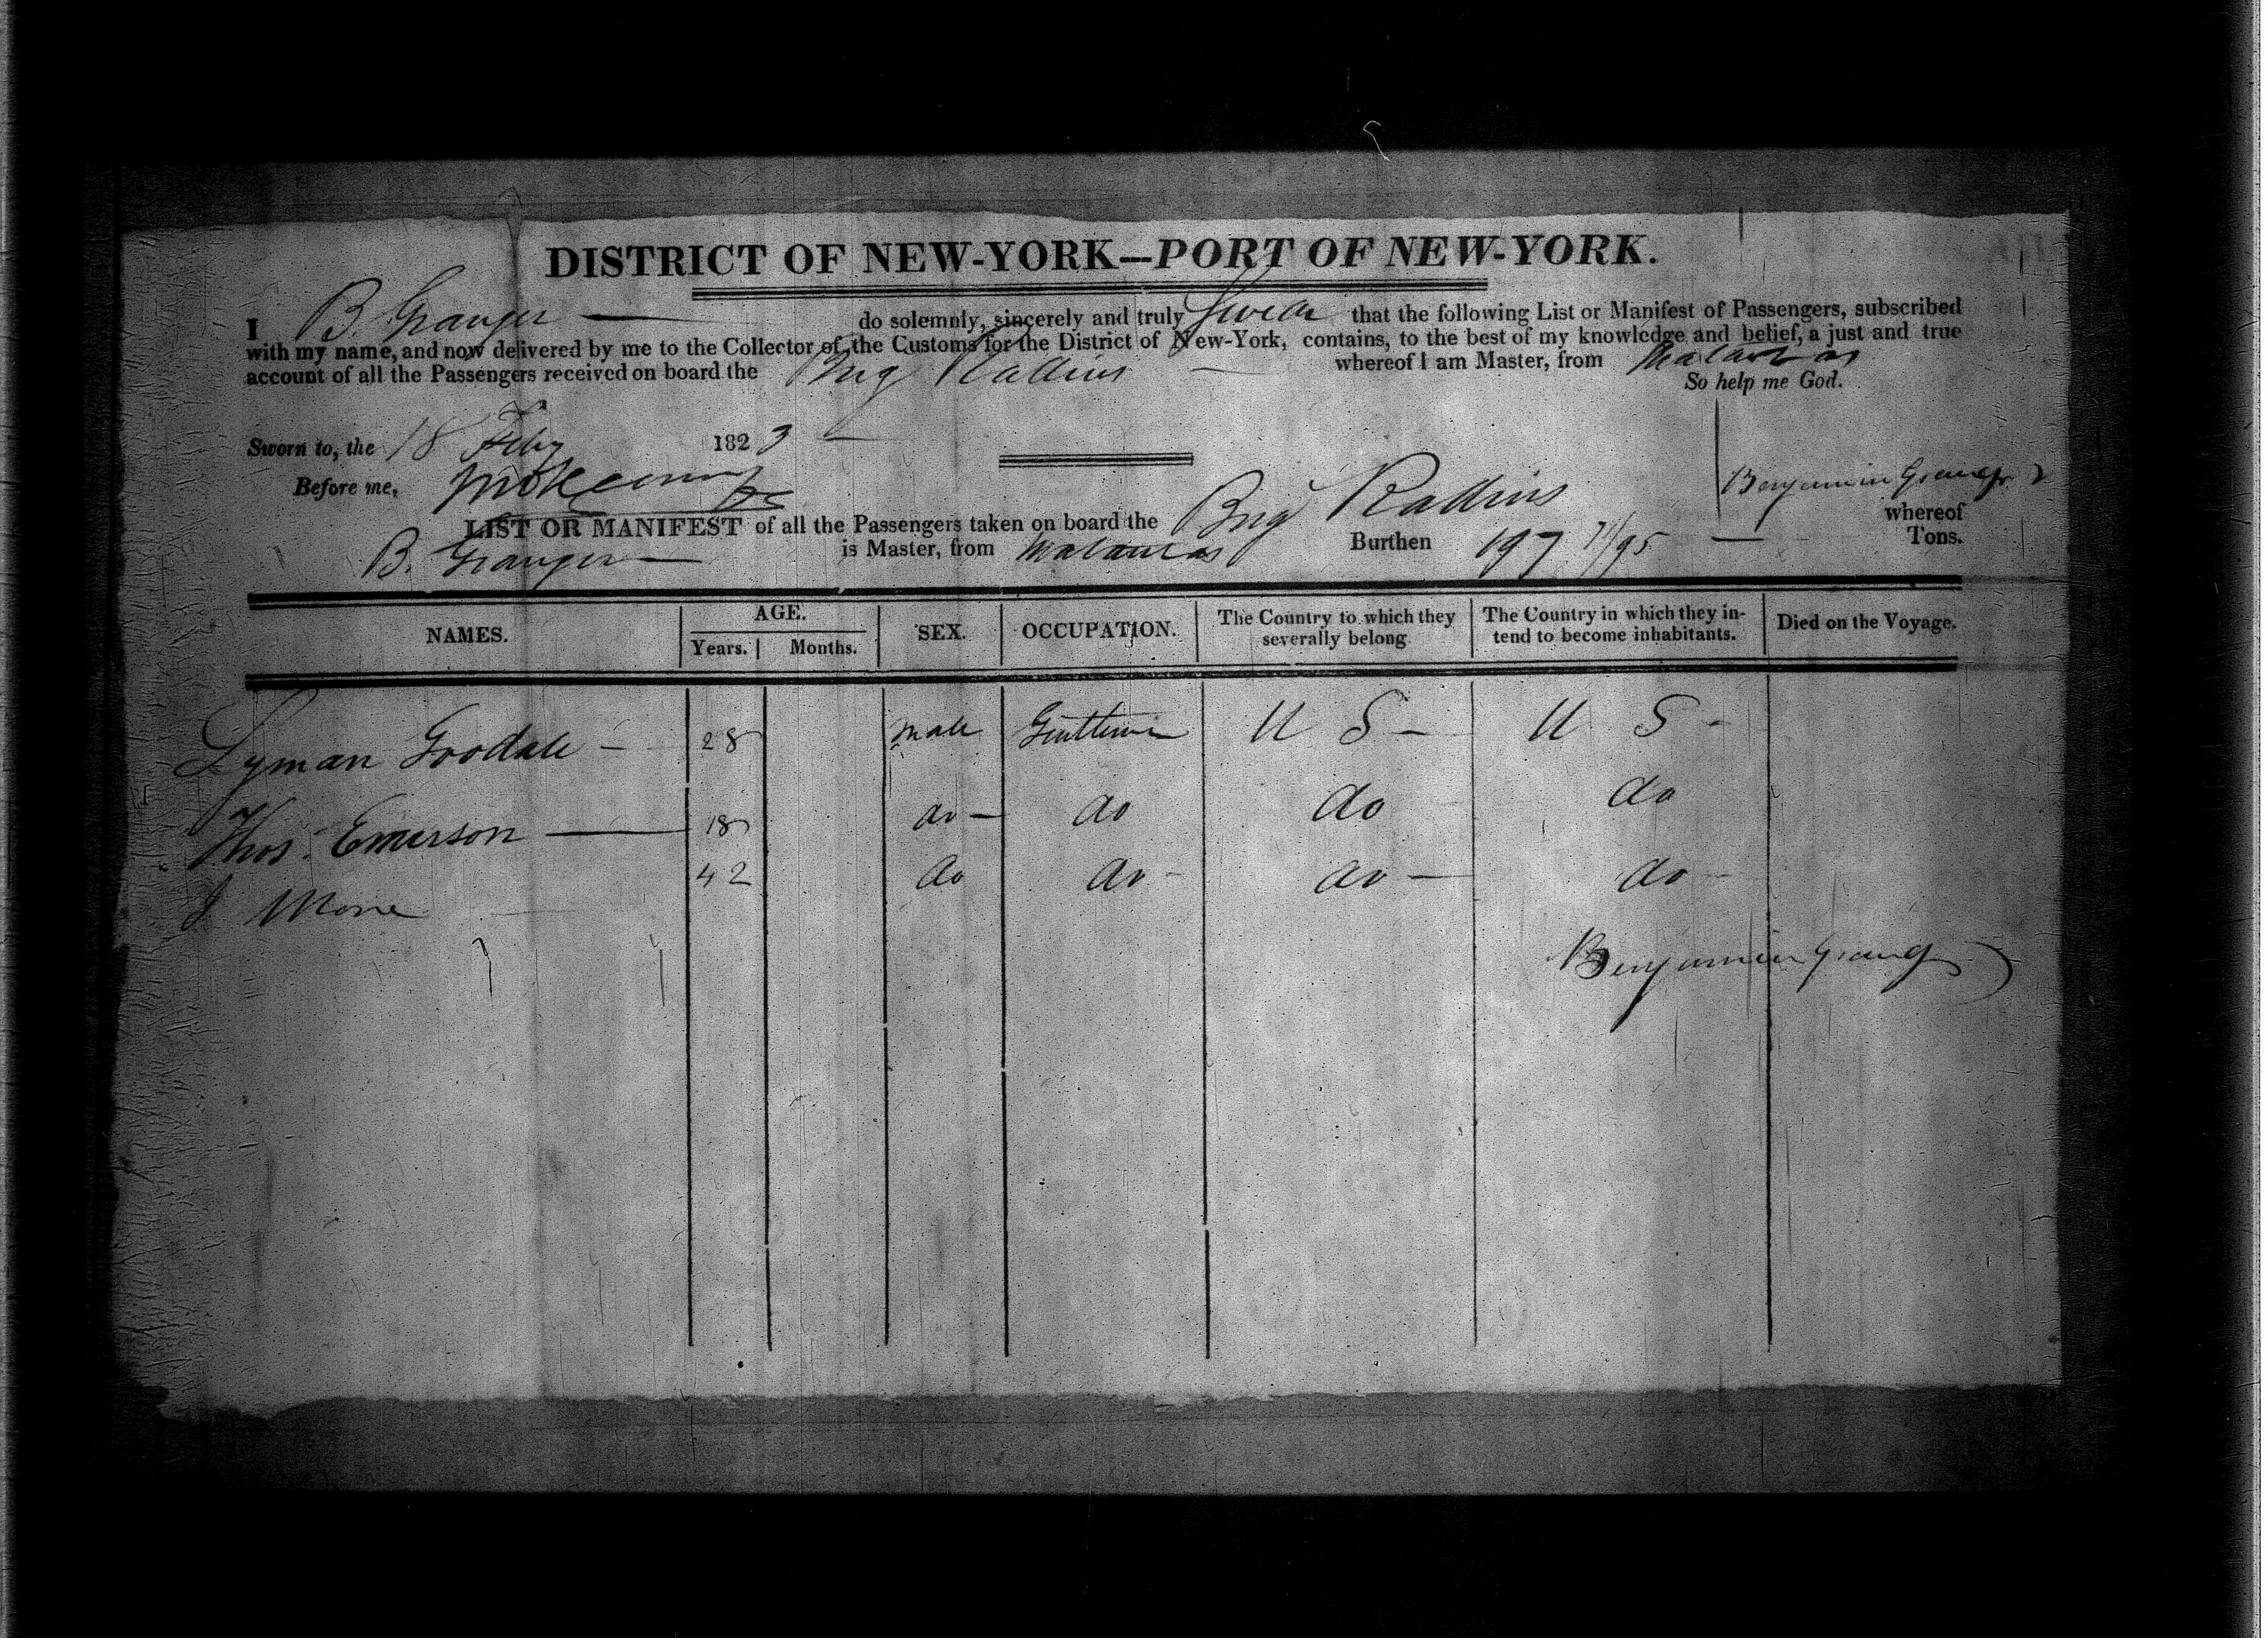 DISTRICT OF NEW-YORK—PORT OF NEW-YORK.
I B. Granger — do solemnly, sincerely and truly Swear that the following List or Manifest of Passengers, subscribed
with my name, and now delivered by me to the Collector of the Customs for the District of New-York, contains, to the best of my knowledge and belief, a just and true
account of all the Passengers received on board the Brig whereof I am Master, from Matanzas
So help me God.
Sworn to, the 18 Feby 1823 —
Before me,
Benjamin Granger
LIST OR MANIFEST of all the Passengers taken on board the Brig whereof
B. Granger — is Master, from Matanzas Burthen 197 71/95 — Tons.
NAMES. AGE. Years. Months. SEX. OCCUPATION. The Country to which they severally belong The Country in which they intend to become inhabitants. Died on the Voyage.
Lyman Goodale — 28 male Gentleman U S — U S -
Thos. Emerson — 18 do — do do do
J 42 do do - do — do -
Benjamin Granger